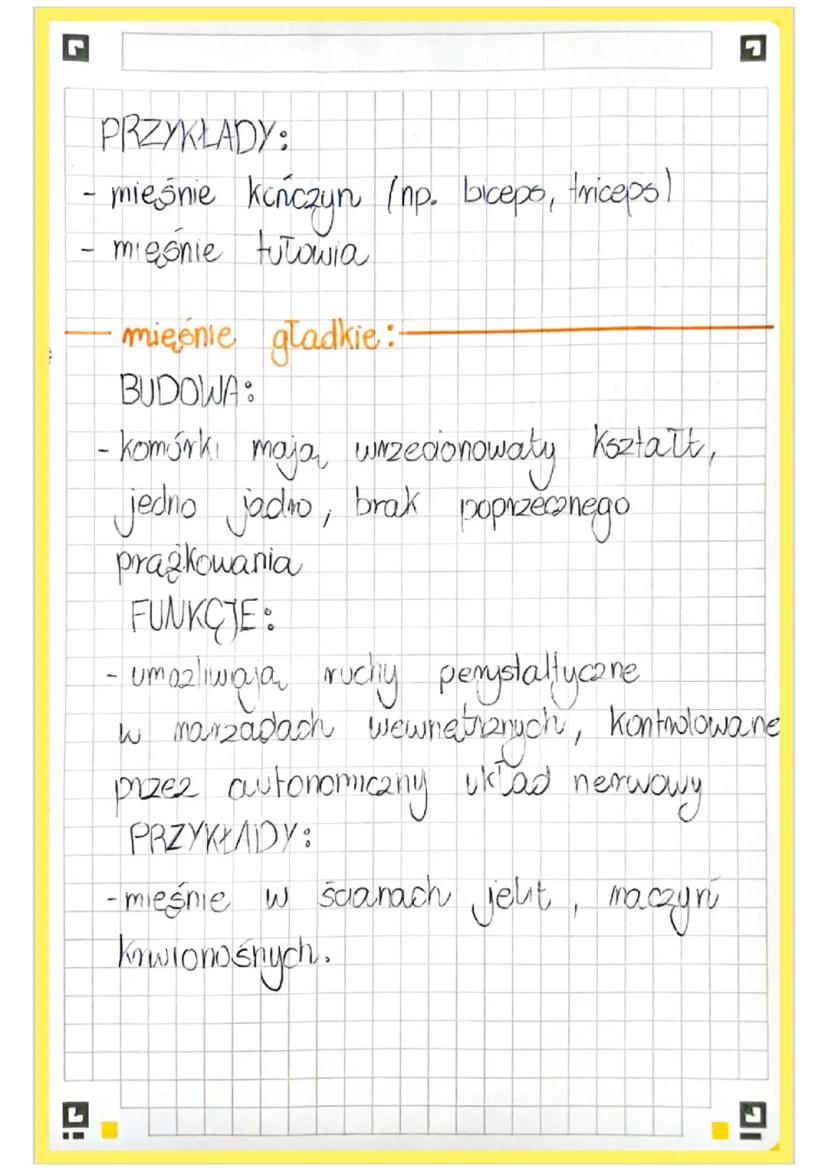 PRZYKŁADY:
- mięśnie kończyn (np. biceps, triceps)
- mięśnie tułowia
mięśnie gładkie:
BUDOWA:
- komórki mają wrzecionowaty kształt,
jedno jądro, brak poprzecznego
prążkowania
FUNKCJE:
- umożliwiają ruchy perystaltyczne
w narządach wewnętrznych, kontrolowane
przez autonomiczny układ nerwowy
PRZYKŁADY:
- mięśnie w ścianach jelit, naczyń
krwionośnych.